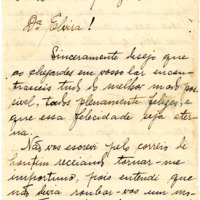 Dª Elvira!
Sinceramente desejo que
ao chegardes em vosso lar encon-
trasseis tudo do melhor modo pos-
sivel, todos plenamente felizes, e
que essa felicidade seja eter-
na.
Não vos escrevi pelo correio de
hontem receiando tornar-me
importuno, pois entendi que
não devia roubar-vos um mo-